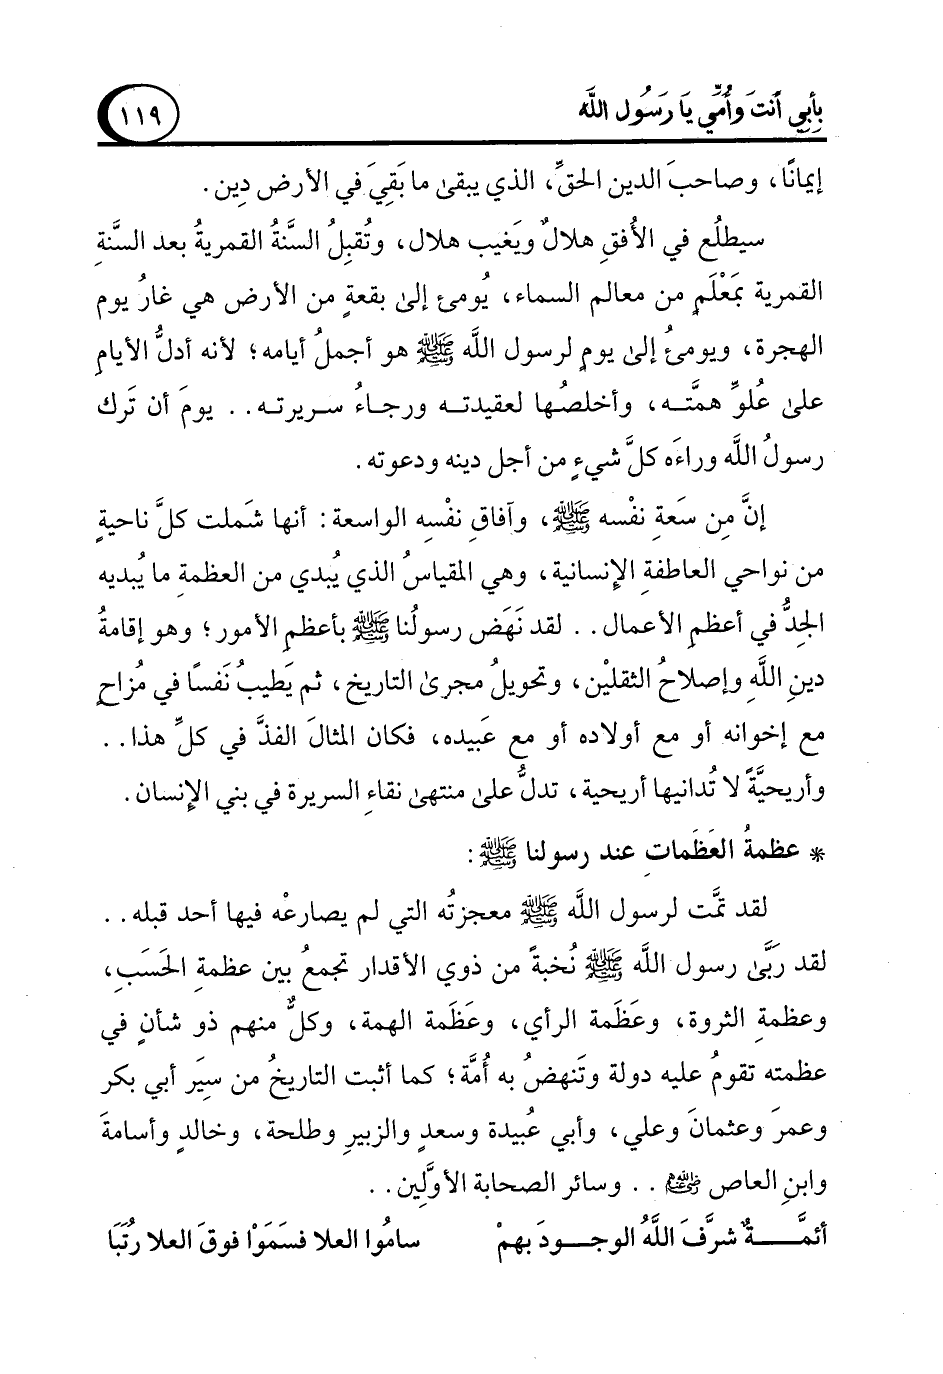 بِأَبِي أَنتَ وَأُمِّي يَا رَسُول اللَّه ١١٩
إيمانًا، وصاحبَ الدين الحقِّ، الذي يبقىٰ ما بَقِيَ في الأرض دِين.
سيطلُع في الأُفقِ هلالٌ ويَغيب هلال، وتُقبِلُ السَّنَةُ القمريةُ بعد السَّنَةِ
القمرية بمَعْلَمٍ من معالم السماء، يُومئ إلىٰ بقعةٍ من الأرض هي غارُ يوم
الهجرة، ويومئُ إلىٰ يومٍ لرسول اللَّه ﷺ هو أجملُ أيامه؛ لأنه أدلُّ الأيامِ
علىٰ عُلوِّ همتَّـه، وأخلصُـها لعقيدتـه ورجـاءُ سـريرتـه.. يومَ أن تَرك
رسولُ اللَّه وراءَه كلَّ شيءٍ من أجل دينه ودعوته.
إنَّ مِن سَعةِ نفْسه ﷺ، وآفاقِ نفْسِه الواسعة: أنها شَملت كلَّ ناحيةٍ
من نواحي العاطفةِ الإنسانية، وهي المقياسُ الذي يُبدي من العظمةِ ما يُبديه
الجِدُّ في أعظمِ الأعمال.. لقد نَهَض رسولُنا ﷺ بأعظمِ الأمور؛ وهو إقامةُ
دينِ اللَّهِ وإصلاحُ الثقلين، وتحويلُ مجرىٰ التاريخ، ثم يَطيبُ نَفسًا في مُزاحٍ
مع إخوانه أو مع أولاده أو مع عَبيده، فكان المثالَ الفذَّ في كلِّ هذا..
وأريحيَّةً لا تُدانيها أريحية، تدلُّ علىٰ منتهىٰ نقاءِ السريرة في بني الإنسان.
* عظمةُ العَظَمات عند رسولنا ﷺ:
لقد تمَّت لرسول اللَّه ﷺ معجزتُه التي لم يصارعْه فيها أحد قبله..
لقد رَبَّىٰ رسول اللَّه ﷺ نُخبةً من ذوي الأقدار تجمعُ بين عظمةِ الحَسَبِ،
وعظمةِ الثروة، وعَظَمة الرأي، وعَظَمة الهمة، وكلٌّ منهم ذو شأنٍ في
عظمته تقومُ عليه دولة وتَنهضُ به أُمَّة؛ كما أثبت التاريخُ من سِيَر أبي بكر
وعمرَ وعثمانَ وعلي، وأبي عُبيدة وسعدٍ والزبيرِ وطلحة، وخالدٍ وأسامةَ
وابنِ العاص رضي الله عنهم.. وسائر الصحابة الأوَّلِين..
أئمَّـــــةٌ شرَّفَ اللَّهُ الوجــودَ بهمْ سامُوا العلا فسَمَوْا فوقَ العلا رُتَبَا